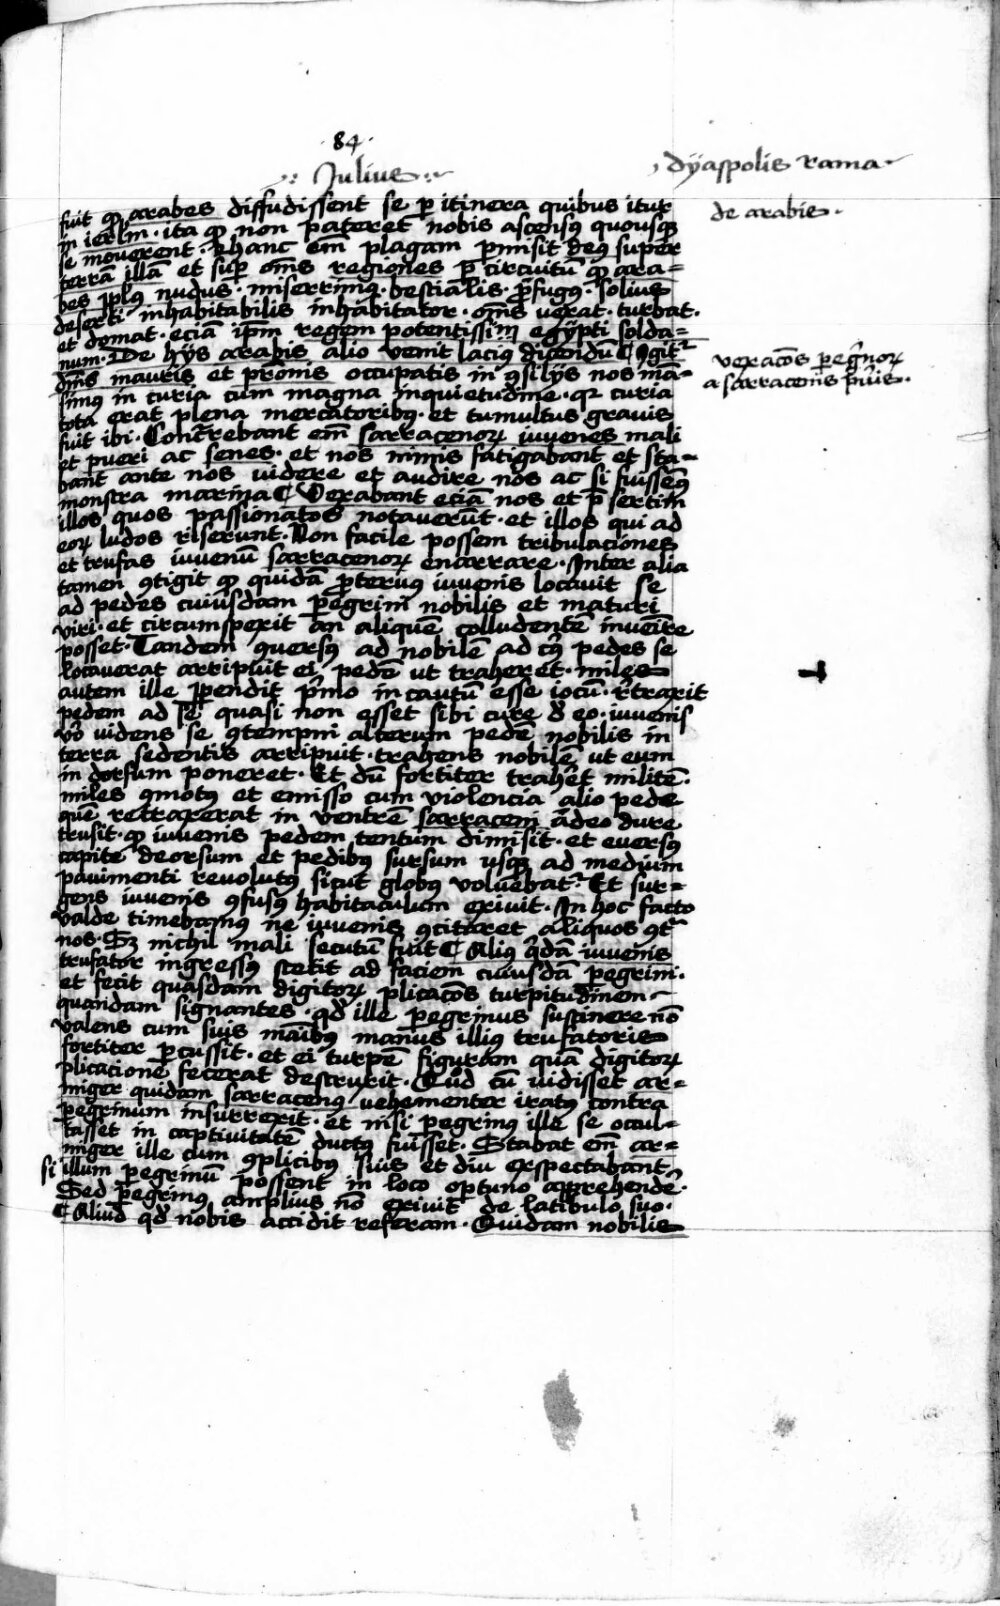 84
Julius
dÿaspolis rama
fuit qꝫ arabes diffudissent se ꝑ itinera quibus itur
de arabis
in ierl̄m · ita qꝫ non pateret nobis ascensꝰ quousqꝫ
se mouerent · hanc em̄ plagam ꝑmisit deꝰ super
terrā illā et suꝑ om̄s regiones ꝑ circuitū qꝫ ara=
bes ip̄lꝰ nudus · miserrimꝰ · bestialis · ꝓfugꝰ · solius
deserti inhabitabilis inhabitator · om̄s uexat · turbat ·
et domat · eciā ip̄m regem potentissim̄ egÿpti solda=
num · De hÿs arabis alio venit laciꝰ dicendū ¶ ꝯgit᷑
vexacōs ꝑegⁱnoꝝ
dn̄is mauris et ꝓronis occupatis in ꝯsilÿs nos mā=
a sarracenis
simꝰ in curia cum magna inquietudine · qꝛ curia
tota erat plena mercatoribꝰ · et tumultus grauis
fuit ibi · Concrebant em̄ sarracenoꝝ iuuenes mali
et pueri ac senes · et nos nimis fatigabant et sta=
bant ante nos videre et audire nos ac si fuissemꝰ
monstra marina ¶ Vexabant eciam nos et p̄sertim
illos quos passionatos notauerūt · et illos qui ad
eoꝝ ludos riserunt · Non facile possem tribulaciones
et trufas iuuenū sarracenoꝝ enarrare · Inter alia
tamen ꝯtigit qꝫ quidā ꝓteruꝰ iuuenis locauit se
ad pedes cuiusdam ꝑegrini nobilis et maturi
viri · et circumspexit an aliquē colludentē inuenire
posset · Tandem ꝗuersꝰ ad nobilē ad cꝰ pedes se
locauerat arripuit ei pedē ut traheret · miles
autem ille ꝑpendit pⁱmo incautū esse iocū · rͤtraxit
pedem ad se quasi non esset sibi cure d̄ eo · iuuenis
vͦ videns se ꝯtempni alterum pedē nobilis in
terra sedentis arripuit · trahens nobilē ut eum
in dorsum poneret · Et dū fortiter trahēt militē ·
miles ꝯmotꝰ et emisso cum violencia alio pede
quē retraxerat in ventrē sarraceni adeo dure
trusit · qꝫ iuuenis pedem tentum dimisit · et euersꝰ
capite deorsum et pedibꝰ sursum usqꝫ ad medium
pauimenti reuolutꝰ sicut globꝰ voluebat᷑ · Et sur=
gens iuuenis ꝯfusꝰ habitaculum exiuit · In hoc facto
valde timebamꝰ ne iuuenis ꝯcitaret aliquos ꝯtᵃ
nos · Sꝫ nichil mali secutū fuit ¶ Aliꝰ qⁱdā iuuenis
trufator ingressꝰ stetit ad faciem cuiusdā pegrini ·
et fecit quasdam digitoꝝ plicacōs turpitudinem
quandam signantes · qd̄ ille ꝑegrinus sustinere nō
valens cum suis māibꝰ manus illiꝰ trufatoris
fortiter ꝑcussit · et ei turpē figuram quā digitoꝝ
plicacione fecerat destruxit · Qūd cū vidisset ar=
miger quidam sarracenꝰ vehementer iratꝰ contra
ꝑegrinum insurrexit · et nisi pegrinꝰ ille se occul=
tasset in captiuitatē ductꝰ fuisset · Stabat em̄ ar=
miger ille cum ꝯplicibꝰ suis et diu exspectabant
si illum ꝑegrinū possent in loco optuno apprehendē ·
Sed ꝑegrinꝰ amplius nō exiuit de latibulo suo ·
¶ Aliud qd̄ nobis accidit referam · Quidam nobilis